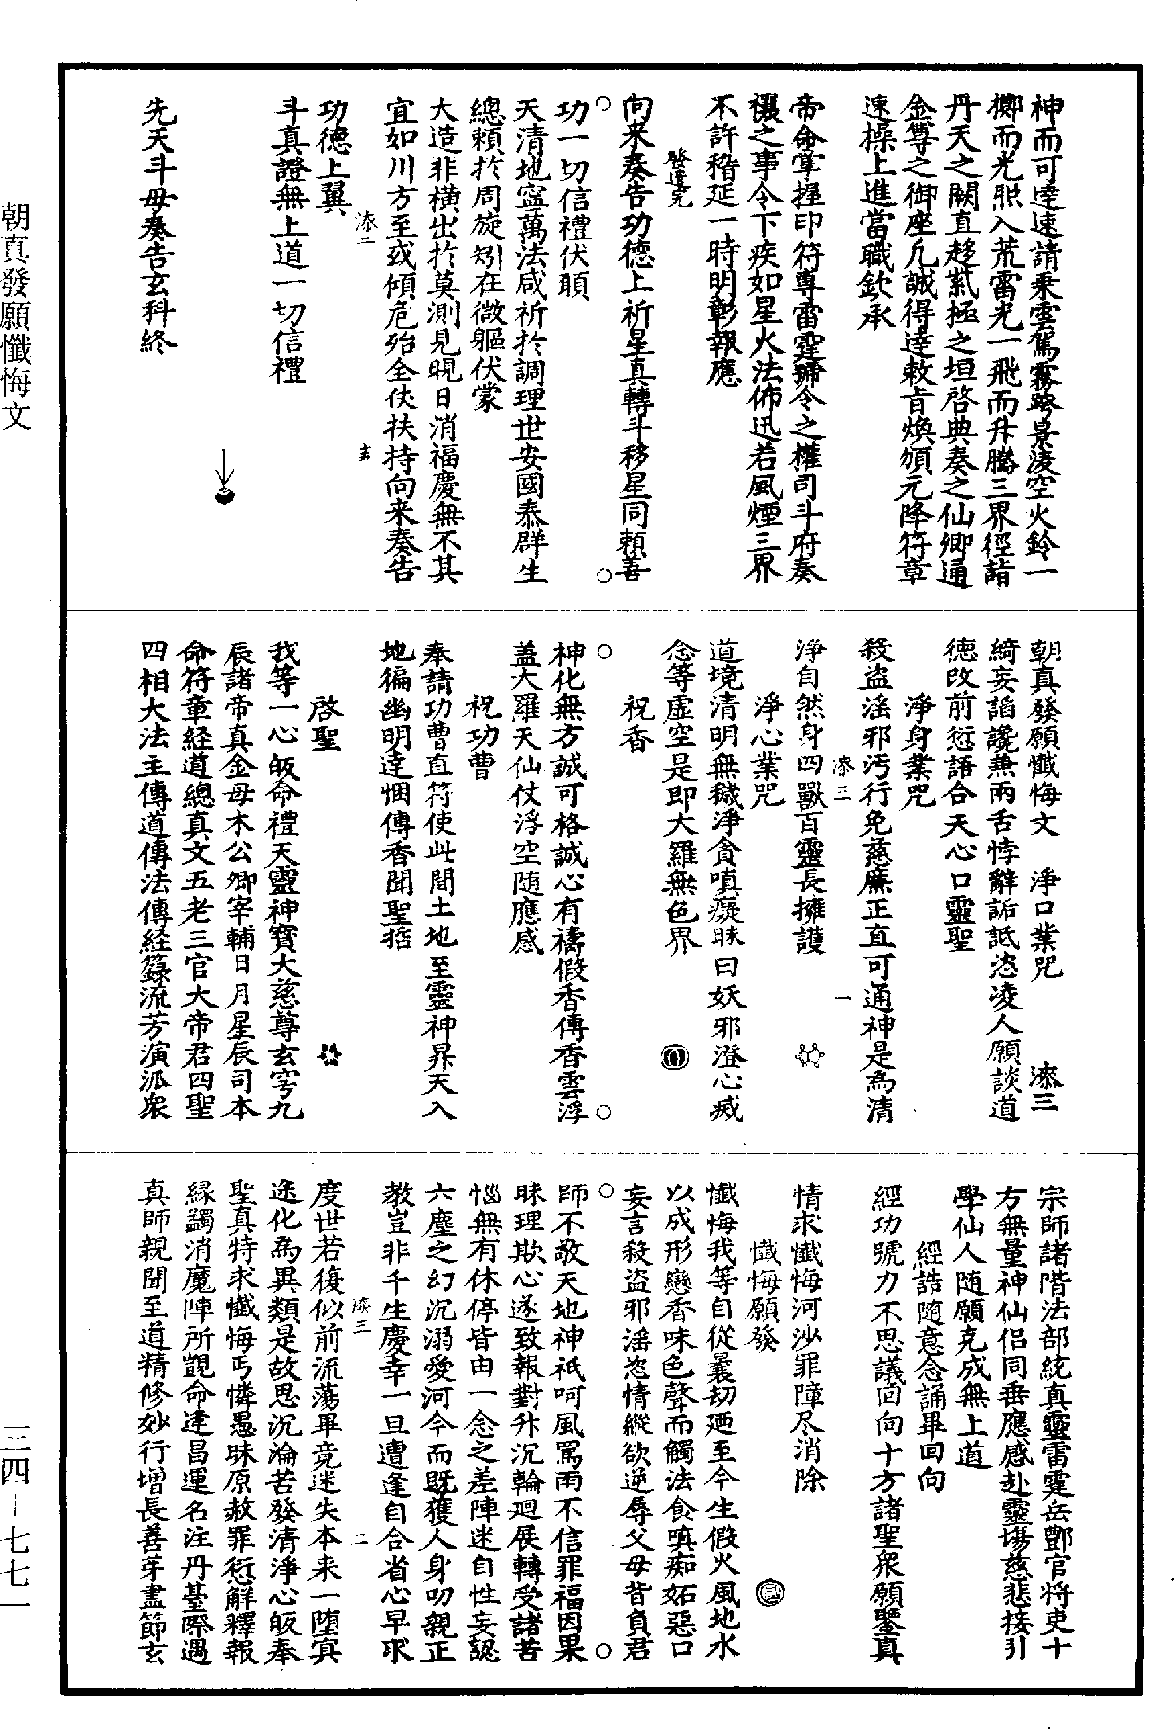 神而可達速請乗雲駕霧跨景淩空火鈴一
擲而光熙入荒雷光一飛而升騰三界徑詣
丹天之闕直趍紫極之垣啓典奏之仙卿通
金尊之御座凢誠得達敕旨煥頒元降符章
速操上進當職欽承
帝命掌握印符尊雷霆號令之權司斗府奏
禳之事令下疾如星火法佈迅若風煙三界
不許稽延一時明彰報應
發遣完
向来奏告功德上祈星真轉斗移星同頼善
功一切信禮伏願
天清地寧萬法咸祈於調理世安國泰群生
總頼於周旋矧在微軀伏蒙
大造非橫出於莫測見晛日消福慶無不其
宜如川方至或傾危殆全伏扶持向来奏告
㓒二
玄
功德上翼
斗真證無上道一切信禮
先天斗母奏告玄科終
朝真發願懺悔文　淨口業咒　㓒三
綺妄謟讒兼兩舌悖辭詬詆恣淩人願談道
德改前愆語合天心口靈聖
淨身業咒
殺盜淫邪汚行免慈廉正直可通神是為清
㓒三
一
淨自然身四獸百靈長擁護
淨心業咒
道境清明無穢淨貪嗔癡昧曰妖邪澄心滅
念等虛空是即大羅無色界
祝香
神化無方誠可格誠心有禱假香傳香雲浮
蓋大羅天仙仗浮空随應感
祝功曹
奉請功曹直符使此間土地至靈神昇天入
地徧幽明達悃傳香聞聖㪽
啓聖
我等一心皈命禮天靈神寶大慈尊玄穹九
辰諸帝真金母木公卿宰輔日月星辰司本
命符章経道總真文五老三官大帝君四聖
四相大法主傳道傳法傳経籙流芳演派衆
宗師諸階法部統真靈雷霆岳酆官將吏十
方無量神仙侣同垂應感赴靈場慈悲接引
學仙人随願克成無上道
經誥随意念誦畢回向
經功號力不思議回向十方諸聖衆願鑒真
情求懺悔河沙罪障尽消除
懺悔願發
懺悔我等自從曩刼廼至今生假火風地水
以成形戀香味色聲而觸法食嗔痴妬惡口
妄言殺盜邪淫恣情縱欲逆辱父母背負君
師不敬天地神祇呵風罵雨不信罪福因果
昧理欺心遂致報對升沉輪廻展轉受諸苦
惱無有休停皆由一念之差陣迷自性妄認
六塵之幻沉溺愛河今而既獲人身叨親正
教豈非千生慶幸一旦遭逢自合省心早求
㓒三
二
度世若復似前流蕩畢竟迷失本来一墮㝠
途化為異類是故思沉淪苦發清淨心皈奉
聖真特求懺悔丐憐愚昧原赦罪愆解釋報
緣蠲消魔陣所覬命逹昌運名注丹臺際遇
真師親聞至道精修妙行增長善芽盡節玄
朝真發願懺悔文
三四－七七一